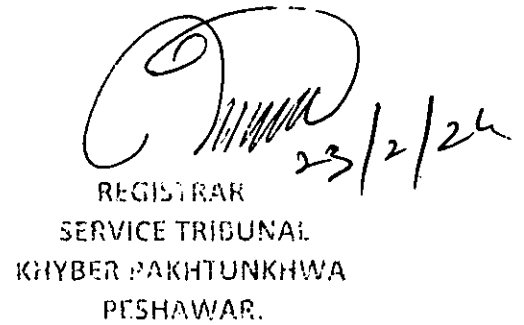 23/2/24
REGISTRAR
SERVICE TRIBUNAL
KHYBER PAKHTUNKHWA
PESHAWAR.